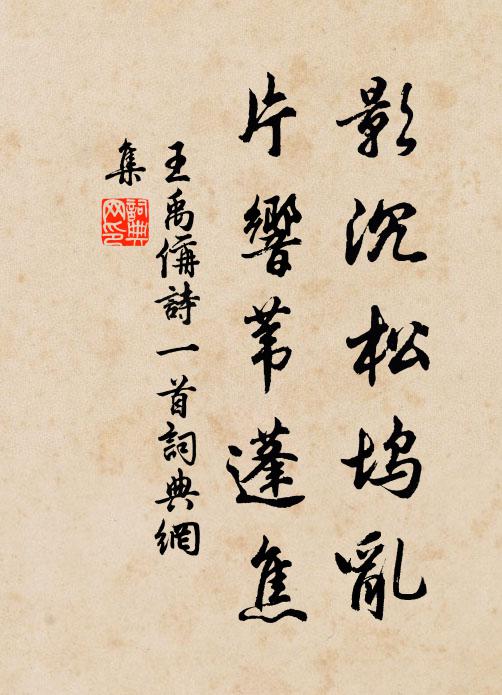 影沉松坞亂
片響葦蓬焦
王禹偁詩一首詞典網
集
詞典网印